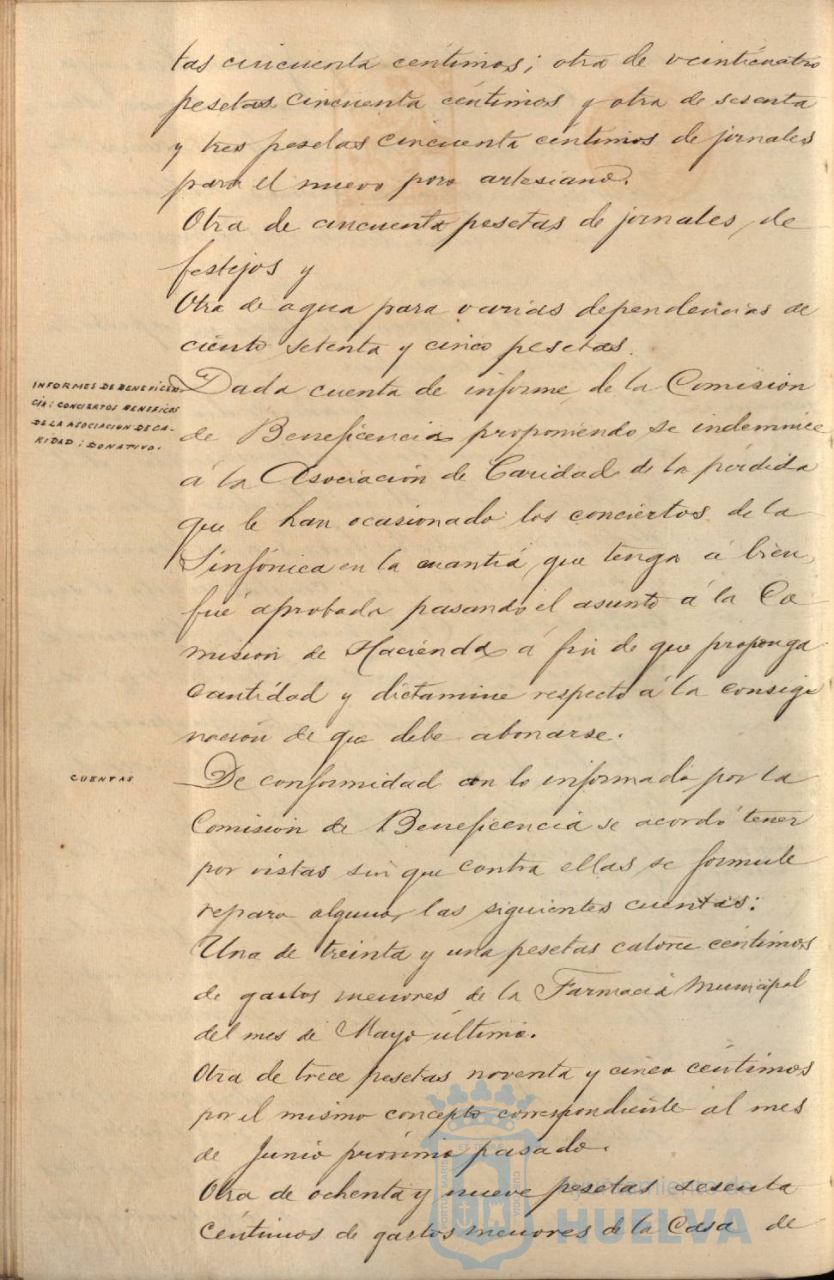 tas cincuenta céntimos; otra de veinticuatro
pesetas cincuenta céntimos y otra de sesenta
y tres pesetas cincuenta céntimos de jornales
para el nuevo pozo artesiano.
Otra de cincuenta pesetas de jornales, de
festejos y
Otra de agua para varias dependencias de
ciento setenta y cinco pesetas.
INFORMES DE BENEFICEN-
CIA: CONCIERTOS BENEFICOS
DE LA ASOCIACION DE CA-
RIDAD: DONATIVO.
Dada cuenta de informe de la Comisión
de Beneficencia proponiendo se indemnice
á la Asociación de Caridad de la pérdida
que le han ocasionado los conciertos de la
Sinfónica en la cuantía que tenga á bien,
fué aprobada pasando el asunto á la Co
misión de Hacienda á fin de que proponga
cantidad y dictamine respecto á la consig
nación de que debe abonarse.
CUENTAS
De conformidad con lo informado por la
Comisión de Beneficencia se acordó tener
por vistas sin que contra ellas se formule
reparo alguno, las siguientes cuentas:
Una de treinta y una pesetas catorce céntimos
de gastos menores de la Farmacia Municipal
del mes de Mayo último.
Otra de trece pesetas noventa y cinco céntimos
por el mismo concepto correspondiente al mes
de Junio próximo pasado.
Otra de ochenta y nueve pesetas sesenta
céntimos de gastos menores de la Casa de
HUELVA